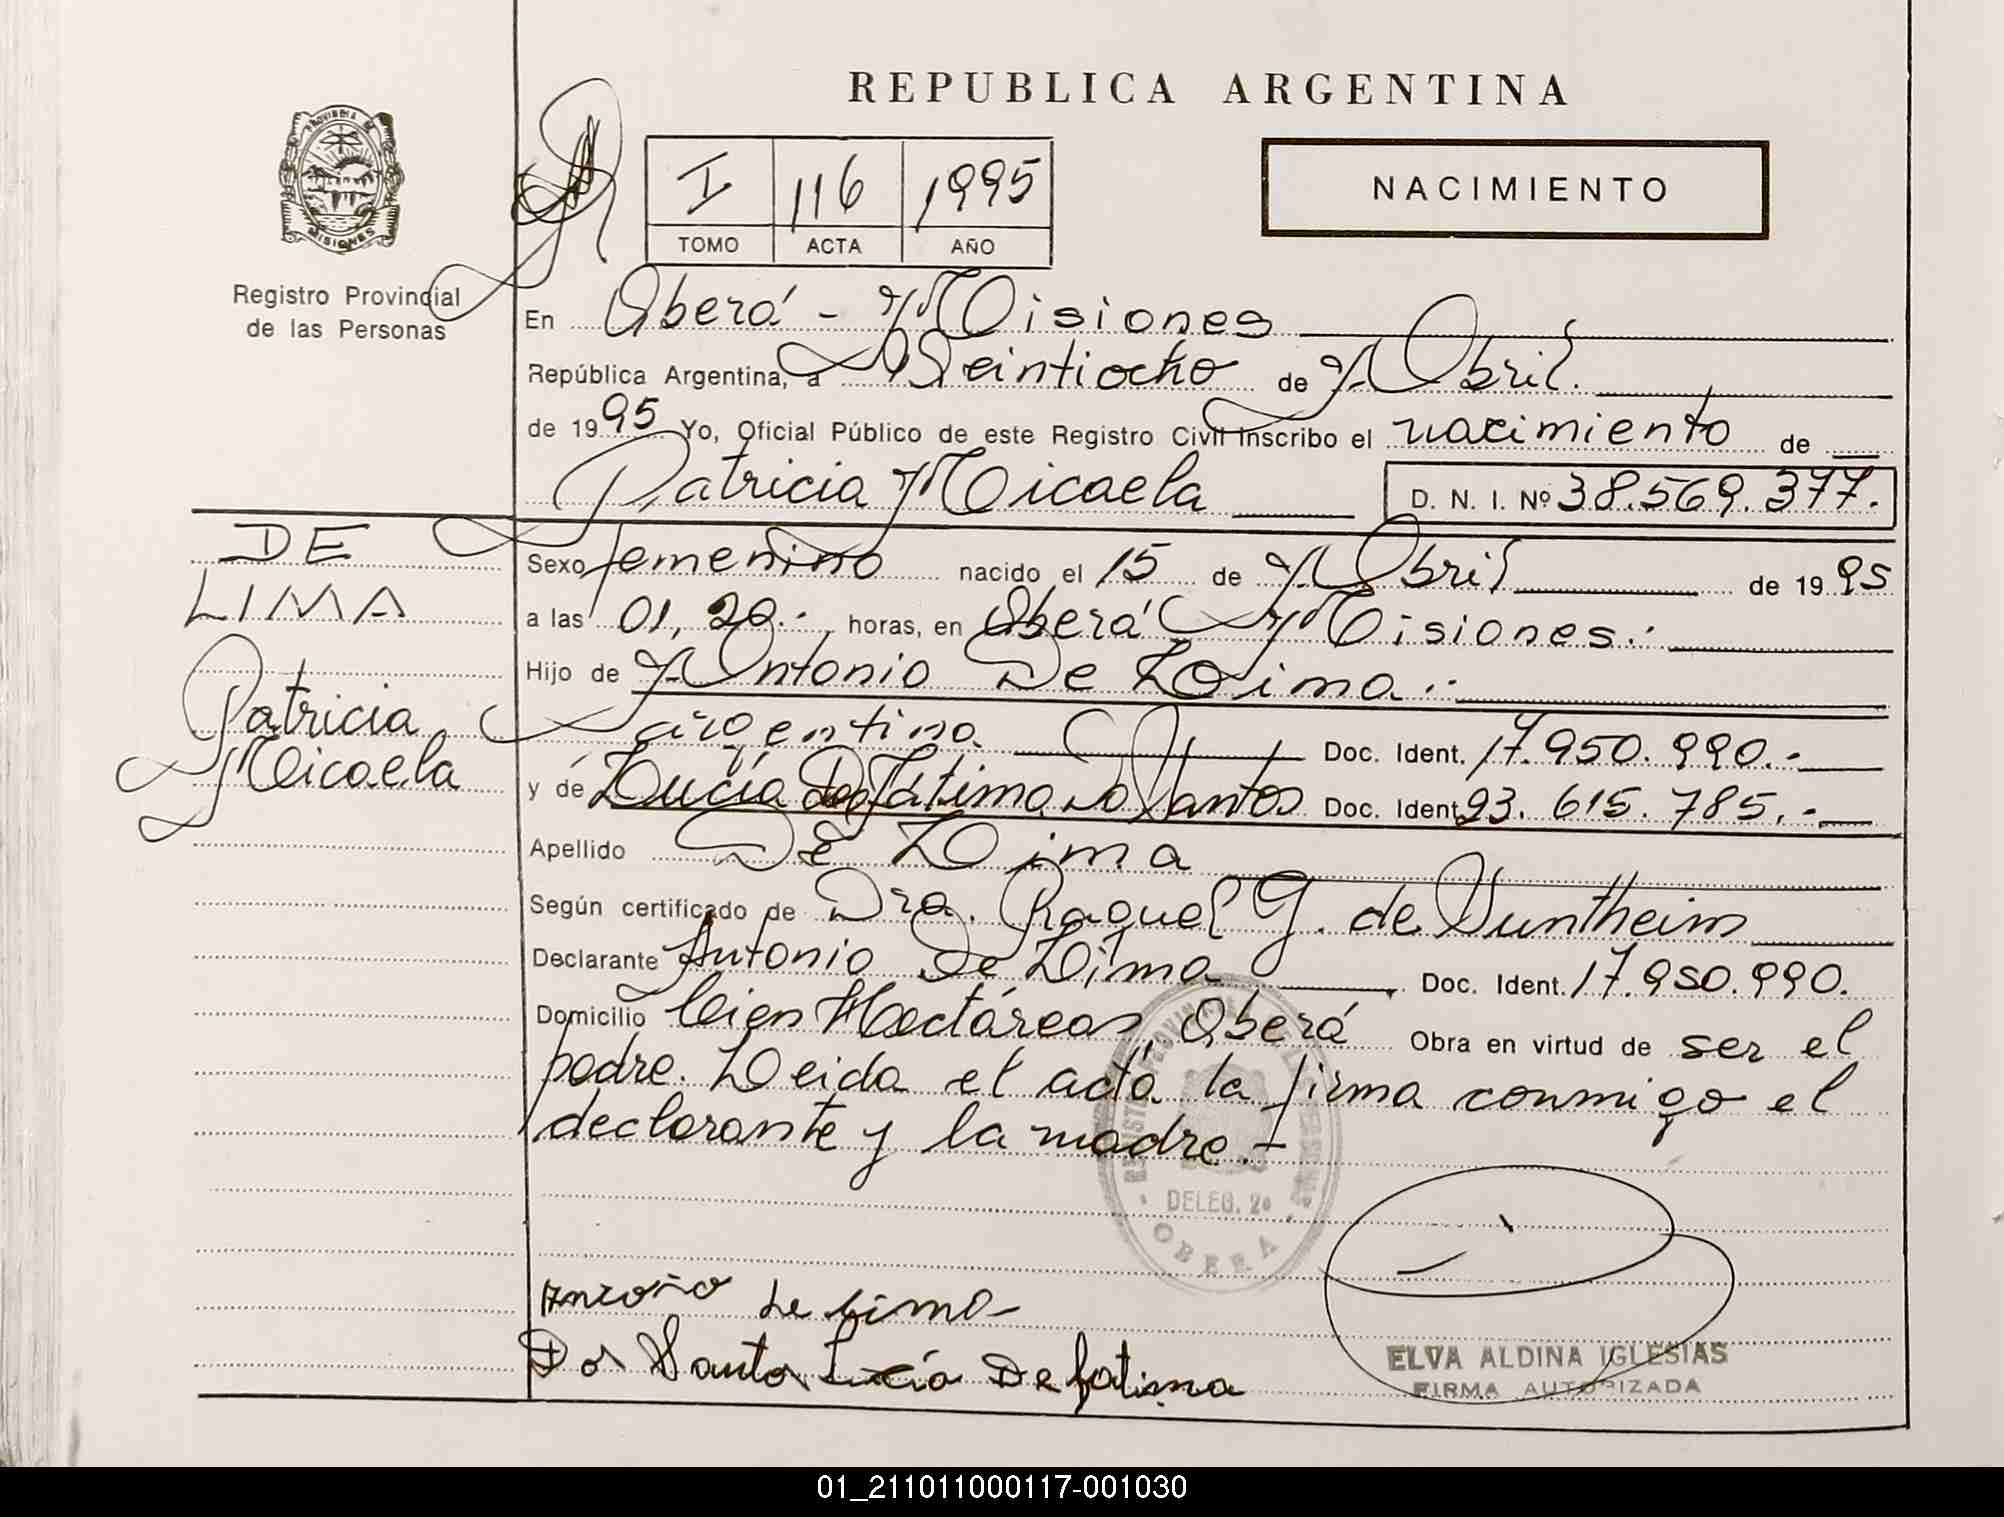 REPUBLICA ARGENTINA
PROVINCIA DE
MISIONES
Registro Provincial
de las Personas
I 116 1995
TOMO ACTA AÑO
NACIMIENTO
En Oberá - Misiones
República Argentina, a Veintiocho de Abril.
de 1995 Yo, Oficial Público de este Registro Civil inscribo el nacimiento de
Patricia Micaela D. N. I. Nº 38.569.377.
DE
LIMA
Patricia
Micaela
Sexo femenino nacido el 15 de Abril de 1995
a las 01,20.- horas, en Oberá Misiones.-
Hijo de Antonio De Lima.-
argentino Doc. Ident. 17.950.990.-
y de Lucía De Fátima Do Santos Doc. Ident. 23.615.785.-
Apellido DE Lima
Según certificado de Dra. Raquel G. de Suntheim
Declarante Antonio De Lima Doc. Ident. 17.950.990.
Domicilio Cien Hectáreas Oberá Obra en virtud de ser el
padre. Leida el acta la firma conmigo el
declarante y la madre.-
DELEG. 2º
OBERA
Antonio de Lima
Dos Santos Lucía De fatima
ELVA ALDINA IGLESIAS
FIRMA AUTORIZADA
01_211011000117-001030